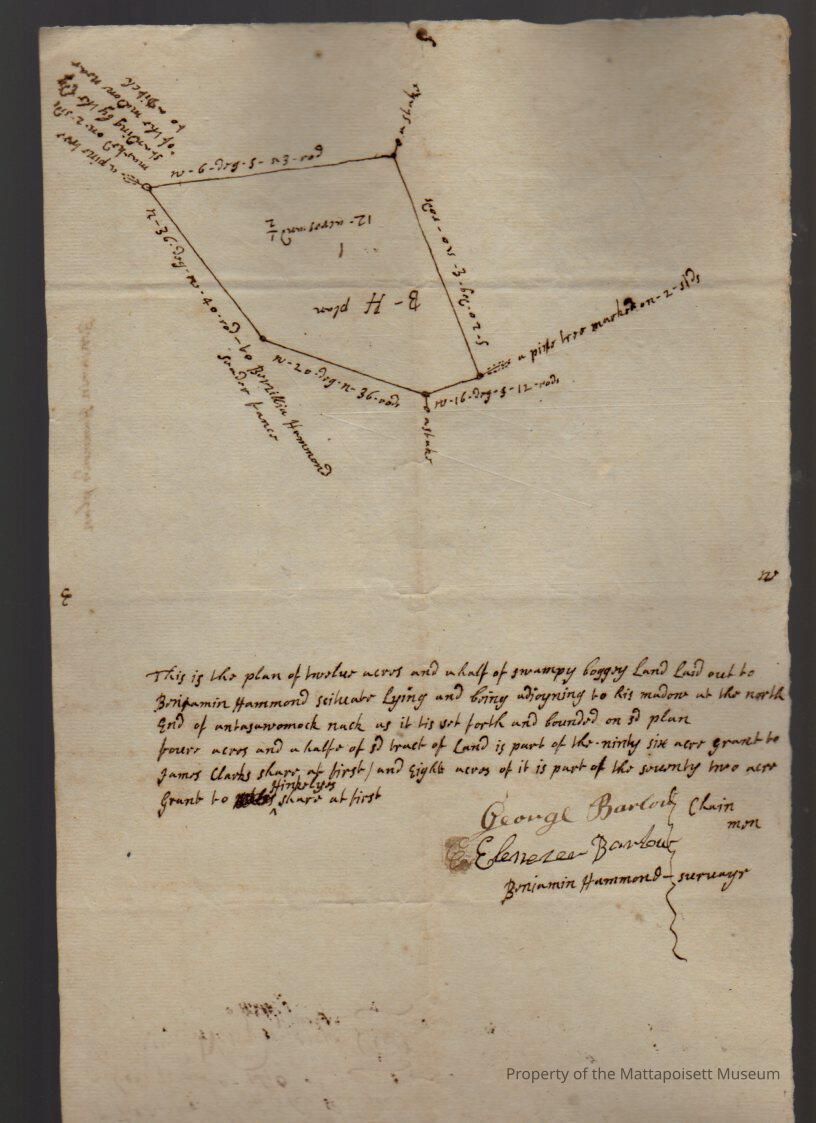 S
a stake
a pine tree
marked on 2 sids
standing by the Eg
of the madow near
to a Ditch
w-6-deg-s-53-rod
12-acres and ½
B-H plan
s-20-deg-
n-36-deg-w-40-rod-to Berzillia Hammond
sender fance
w-20-deg-n-36-rods
w-16-deg-s-12-rods
a pine tree marked on-2-sids
a stake
E
w
This is the plan of twelve acres and a half of swampy boggey Land Laid out to
Benjamin Hammond scituate Lying and being adjoyning to his madow at the north
End of antasawomock nack as it tis set forth and bounded on sd plan
foure acres and a halfe of sd tract of Land is part of the ninty six acre grant to
James Clarks share at first / and Eight acres of it is part of the seventy two acre
Hinkelyes
grant to ^ share at first
George Barlow
Chain
men
Ebenezer Barlow
Benjamin Hammond - survayr
Property of the Mattapoisett Museum